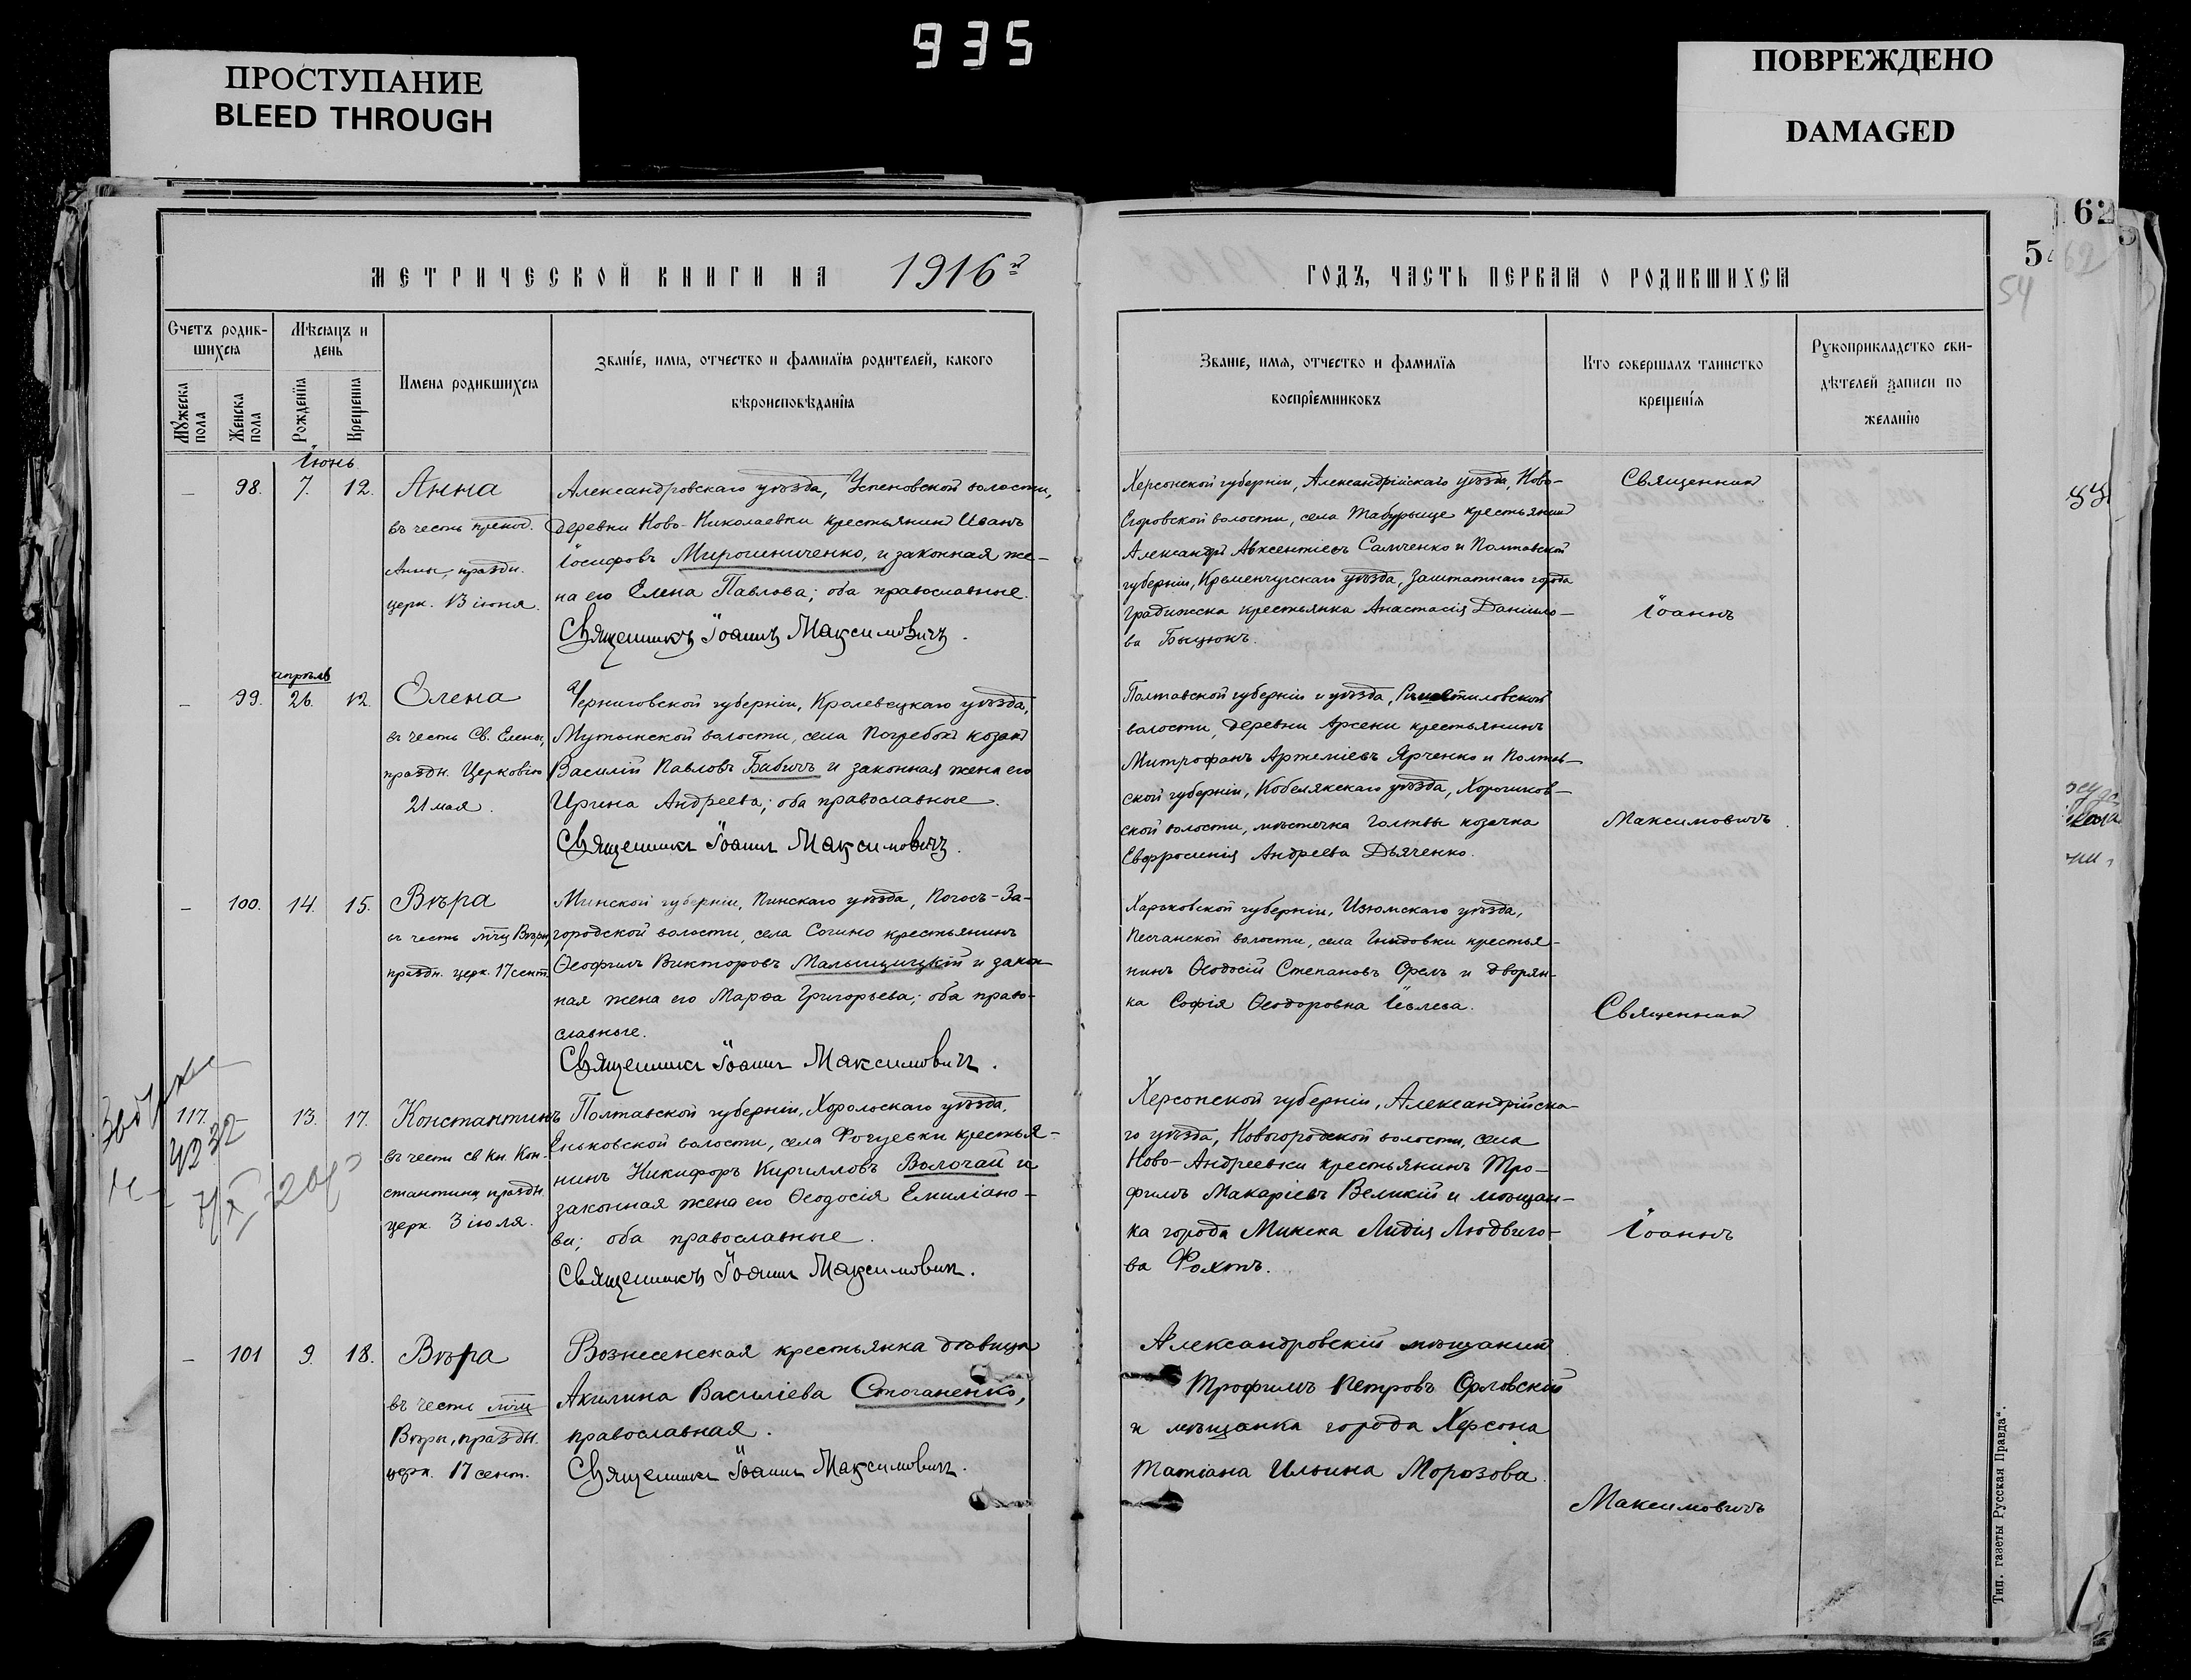 935
ПРОСТУПАНИЕ
BLEED THROUGH
ПОВРЕЖДЕНО
DAMAGED
62
54
МЕТРИЧЕСКОЙ КНИГИ НА 1916 й
Счетъ родив-
шихся
Мѣсяцъ и
день
Мужеска
пола
Женска
пола
Рожденія
Крещенія
Имена родившихся
Званіе, имя, отчество и фамилія родителей, какого
вѣроисповѣданія
Іюнь
— 98. 7. 12. Анна
въ честь препод.
Анны, праздн.
церк. 13 іюня.
Александровскаго уѣзда, Успеновской волости,
деревни Ново-Николаевки крестьянинъ Иванъ
Іосифовъ Мирошниченко, и законная же-
на его Елена Павлова; оба православные.
Священникъ Іоаннъ Максимовичъ.
апрѣль
— 99. 26. 12. Елена
въ честь Св. Елены,
праздн. Церковію
21 мая.
Черниговской губерніи, Кролевецкаго уѣзда,
Мутынской волости, села Погребки козакъ
Василій Павловъ Бабичъ и законная жена его
Ирина Андреева; оба православные.
Священникъ Іоаннъ Максимовичъ.
— 100. 14. 15. Вѣра
въ честь мчц Вѣры,
праздн. церк. 17 сент.
Минской губерніи, Пинскаго уѣзда, Погосъ-За-
городской волости, села Сошно крестьянинъ
Ѳеофилъ Викторовъ Малыщицкій и закон-
ная жена его Марѳа Григорьева; оба право-
славные.
Священникъ Іоаннъ Максимовичъ.
117. 13. 17. Константинъ
въ честь св Кн. Кон-
стантина праздн.
церк. 3 іюля.
4232
Полтавской губерніи, Хорольскаго уѣзда,
Еньковской волости, села Рогуевки крестья-
нинъ Никифоръ Кирилловъ Волочай и
законная жена его Ѳеодосія Емиліано-
ва; оба православные.
Священникъ Іоаннъ Максимовичъ.
— 101 9. 18. Вѣра
въ честь мчц
Вѣры, праздн.
церк. 17 сент.
Вознесенская крестьянка дѣвица
Акилина Василіева Стоганенко,
православная.
Священникъ Іоаннъ Максимовичъ.
ГОДЪ, ЧАСТЬ ПЕРВАЯ О РОДИВШИХСЯ
Званіе, имя, отчество и фамилія
воспріемниковъ
Кто совершалъ таинство
крещенія
Рукоприкладство сви-
дѣтелей записи по
желанію
Херсонской губерніи, Александрійскаго уѣзда, Ново-
Егоровской волости, села Табурыще крестьянинъ
Александръ Авксентіевъ Самченко и Полтавской
губерніи, Кременчугскаго уѣзда, Заштатнаго города
Градижска крестьянка Анастасія Даніило-
ва Быцюкъ.
Священникъ
Іоаннъ
Полтавской губерніи и уѣзда,
волости, деревни Арсеки крестьянинъ
Митрофанъ Артеміевъ Ярченко и Полтав-
ской губерніи, Кобелякскаго уѣзда, Хорошков-
ской волости, мѣстечка Голтвы козачка
Евфросинія Андреева Дьяченко.
Максимовичъ
Харьковской губерніи, Изюмскаго уѣзда,
Песчанской волости, села Гнидовки крестья-
нинъ Ѳеодосій Степановъ Орелъ и дворян-
ка Софія Ѳеодоровна Іевлева.
Священникъ
Херсонской губерніи, Александрійска-
го уѣзда, Новогородской волости, села
Ново-Андреевки крестьянинъ Тро-
фимъ Макаріевъ Великій и мѣщан-
ка города Минска Лидія Людвиго-
ва Рохтъ.
Іоаннъ
Александровскій мѣщанинъ
Трофимъ Петровъ Орловскій
и мѣщанка города Херсона
Татіана Ильина Морозова.
Максимовичъ
Тип. газеты Русская Правда".